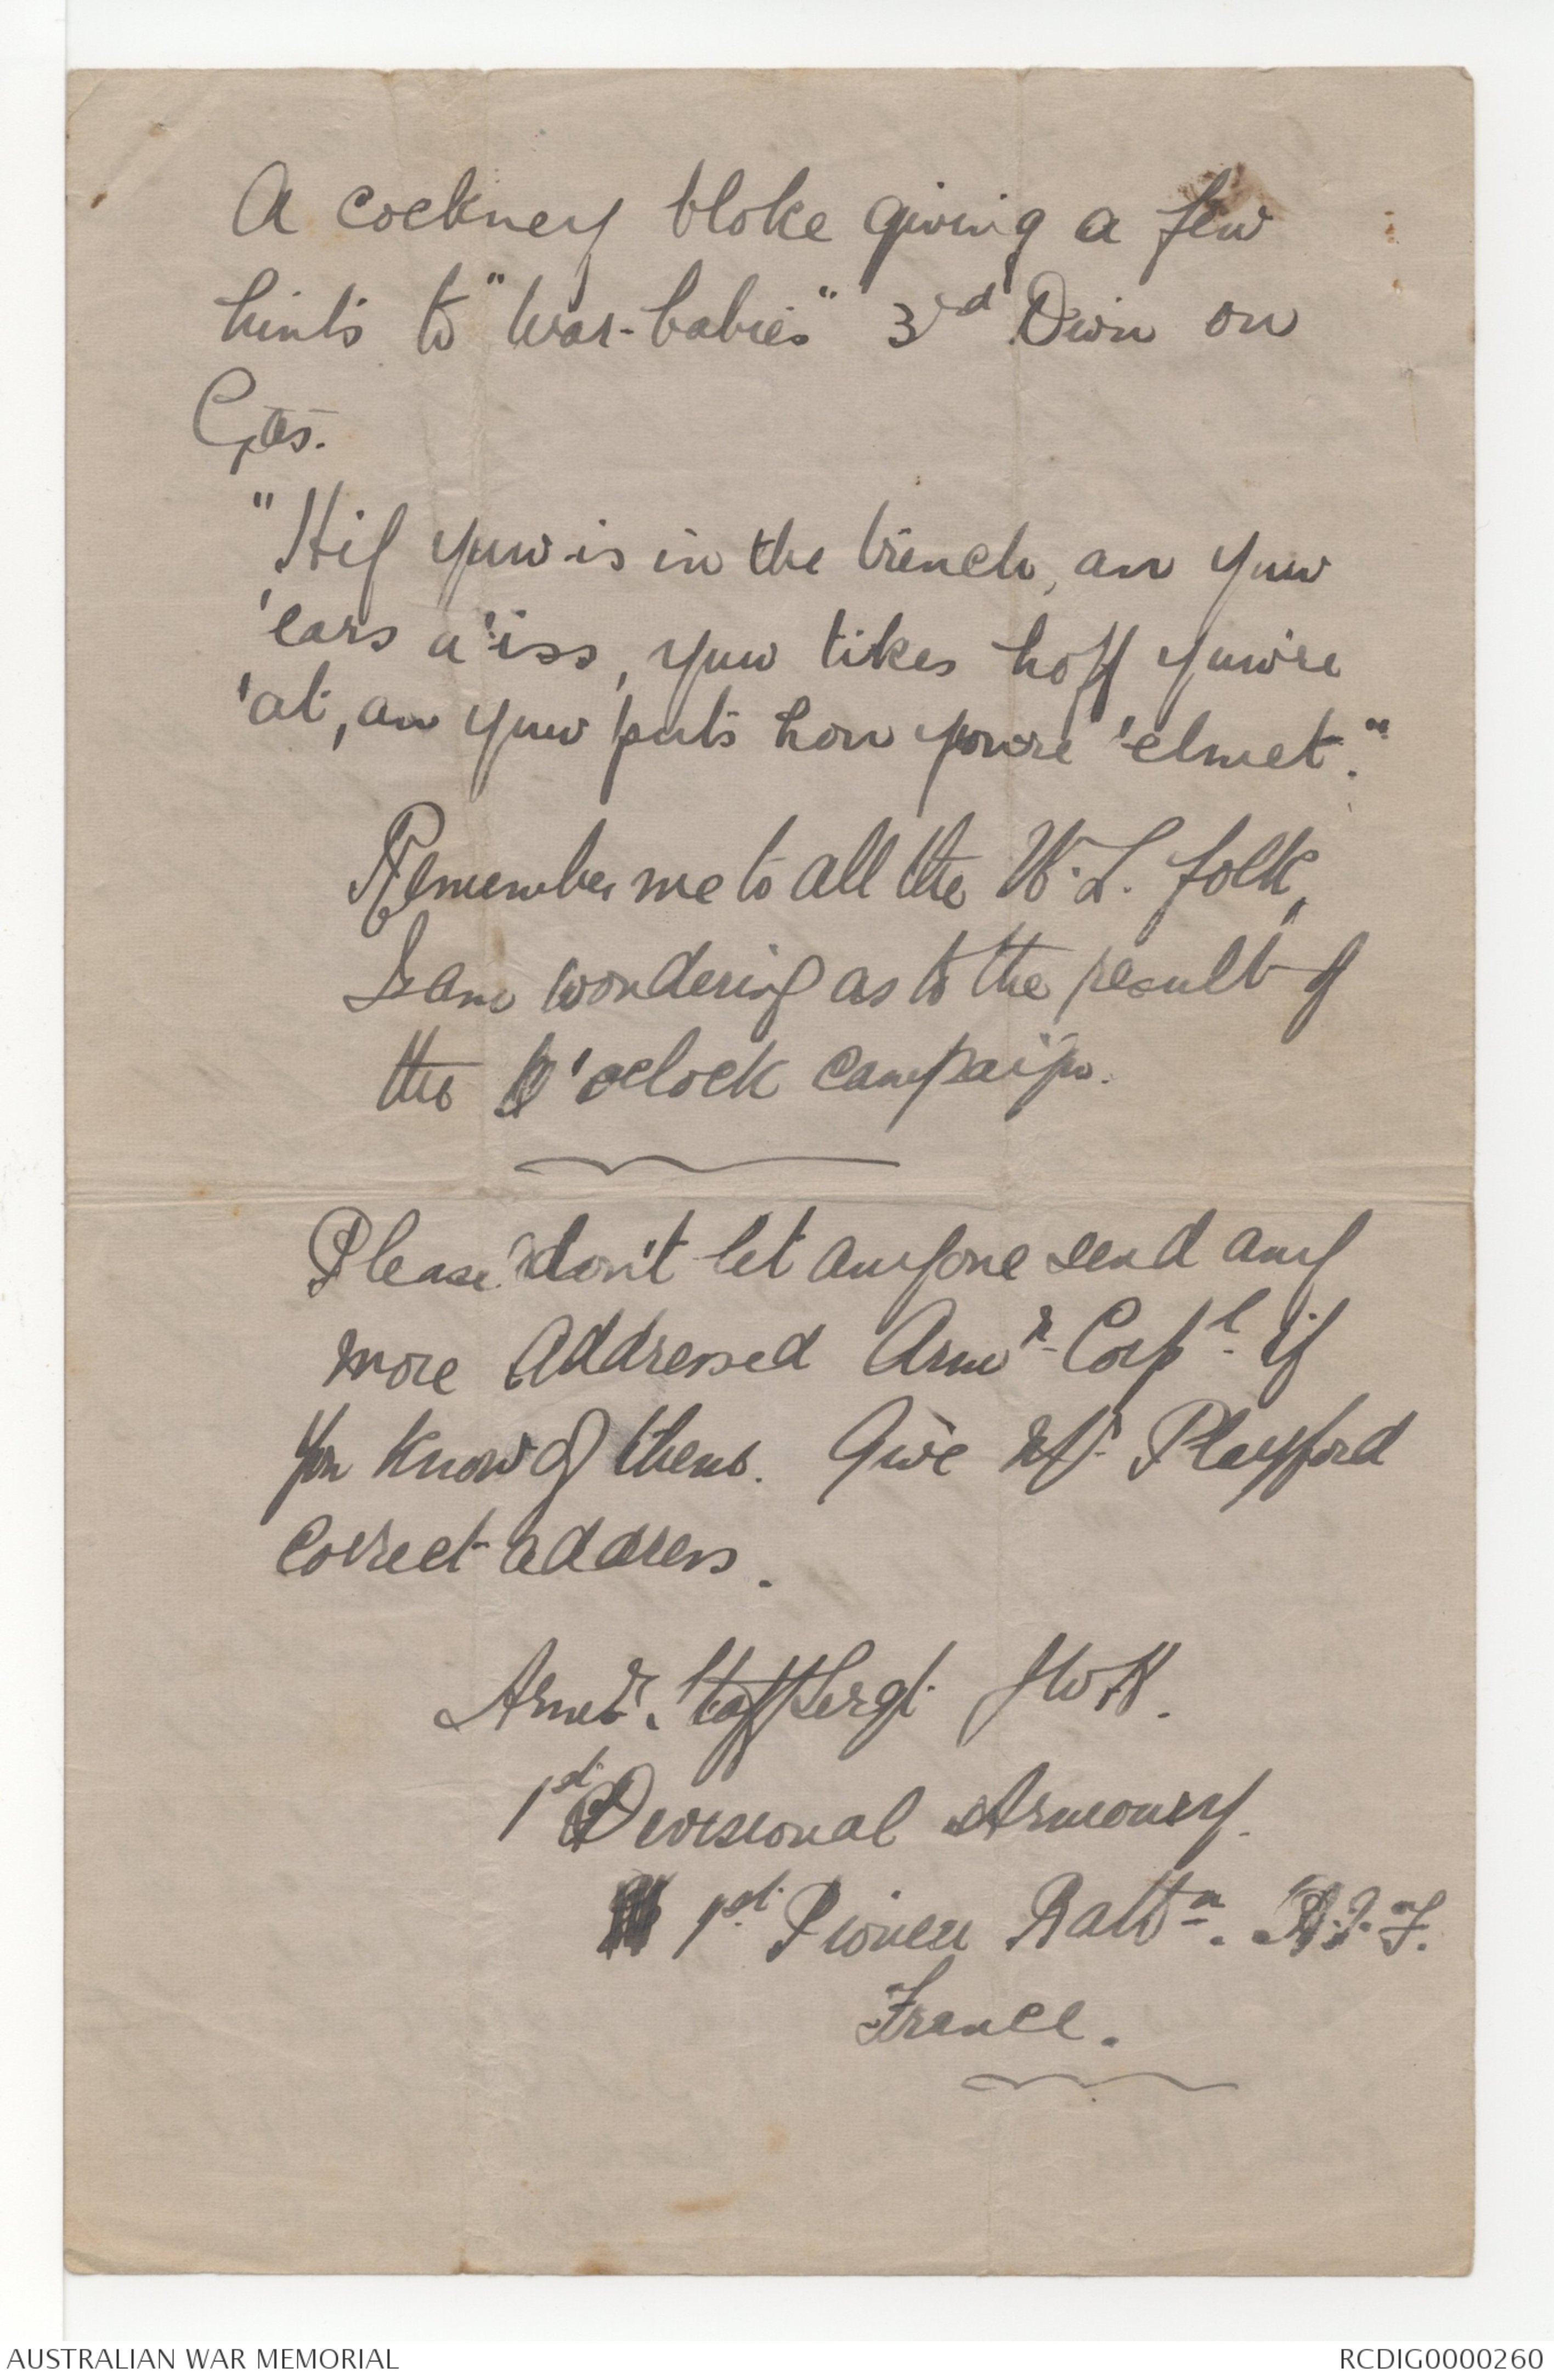 A cockney bloke giving a few
hints to "War-babies" 3rd Divn on
Gas.
"Hif yuw is in the trench, an yuw
'ears a 'iss, yuw tikes hoff yuwre
'at, an yuw puts hon youre 'elmet."
Remember me to all the W.L. folk,
I am wondering as to the result of
the 6 'oclock campaign.
Please don't let anyone send any
more addressed Armr Corpl. if
you know of them. Give Playford
correct address.
Armr. Staff Sergt. JWH.
1st Divisional Armoury.
1st. Pioneer Battn. A.I.F.
France.
AUSTRALIAN WAR MEMORIAL
RCDIG0000260